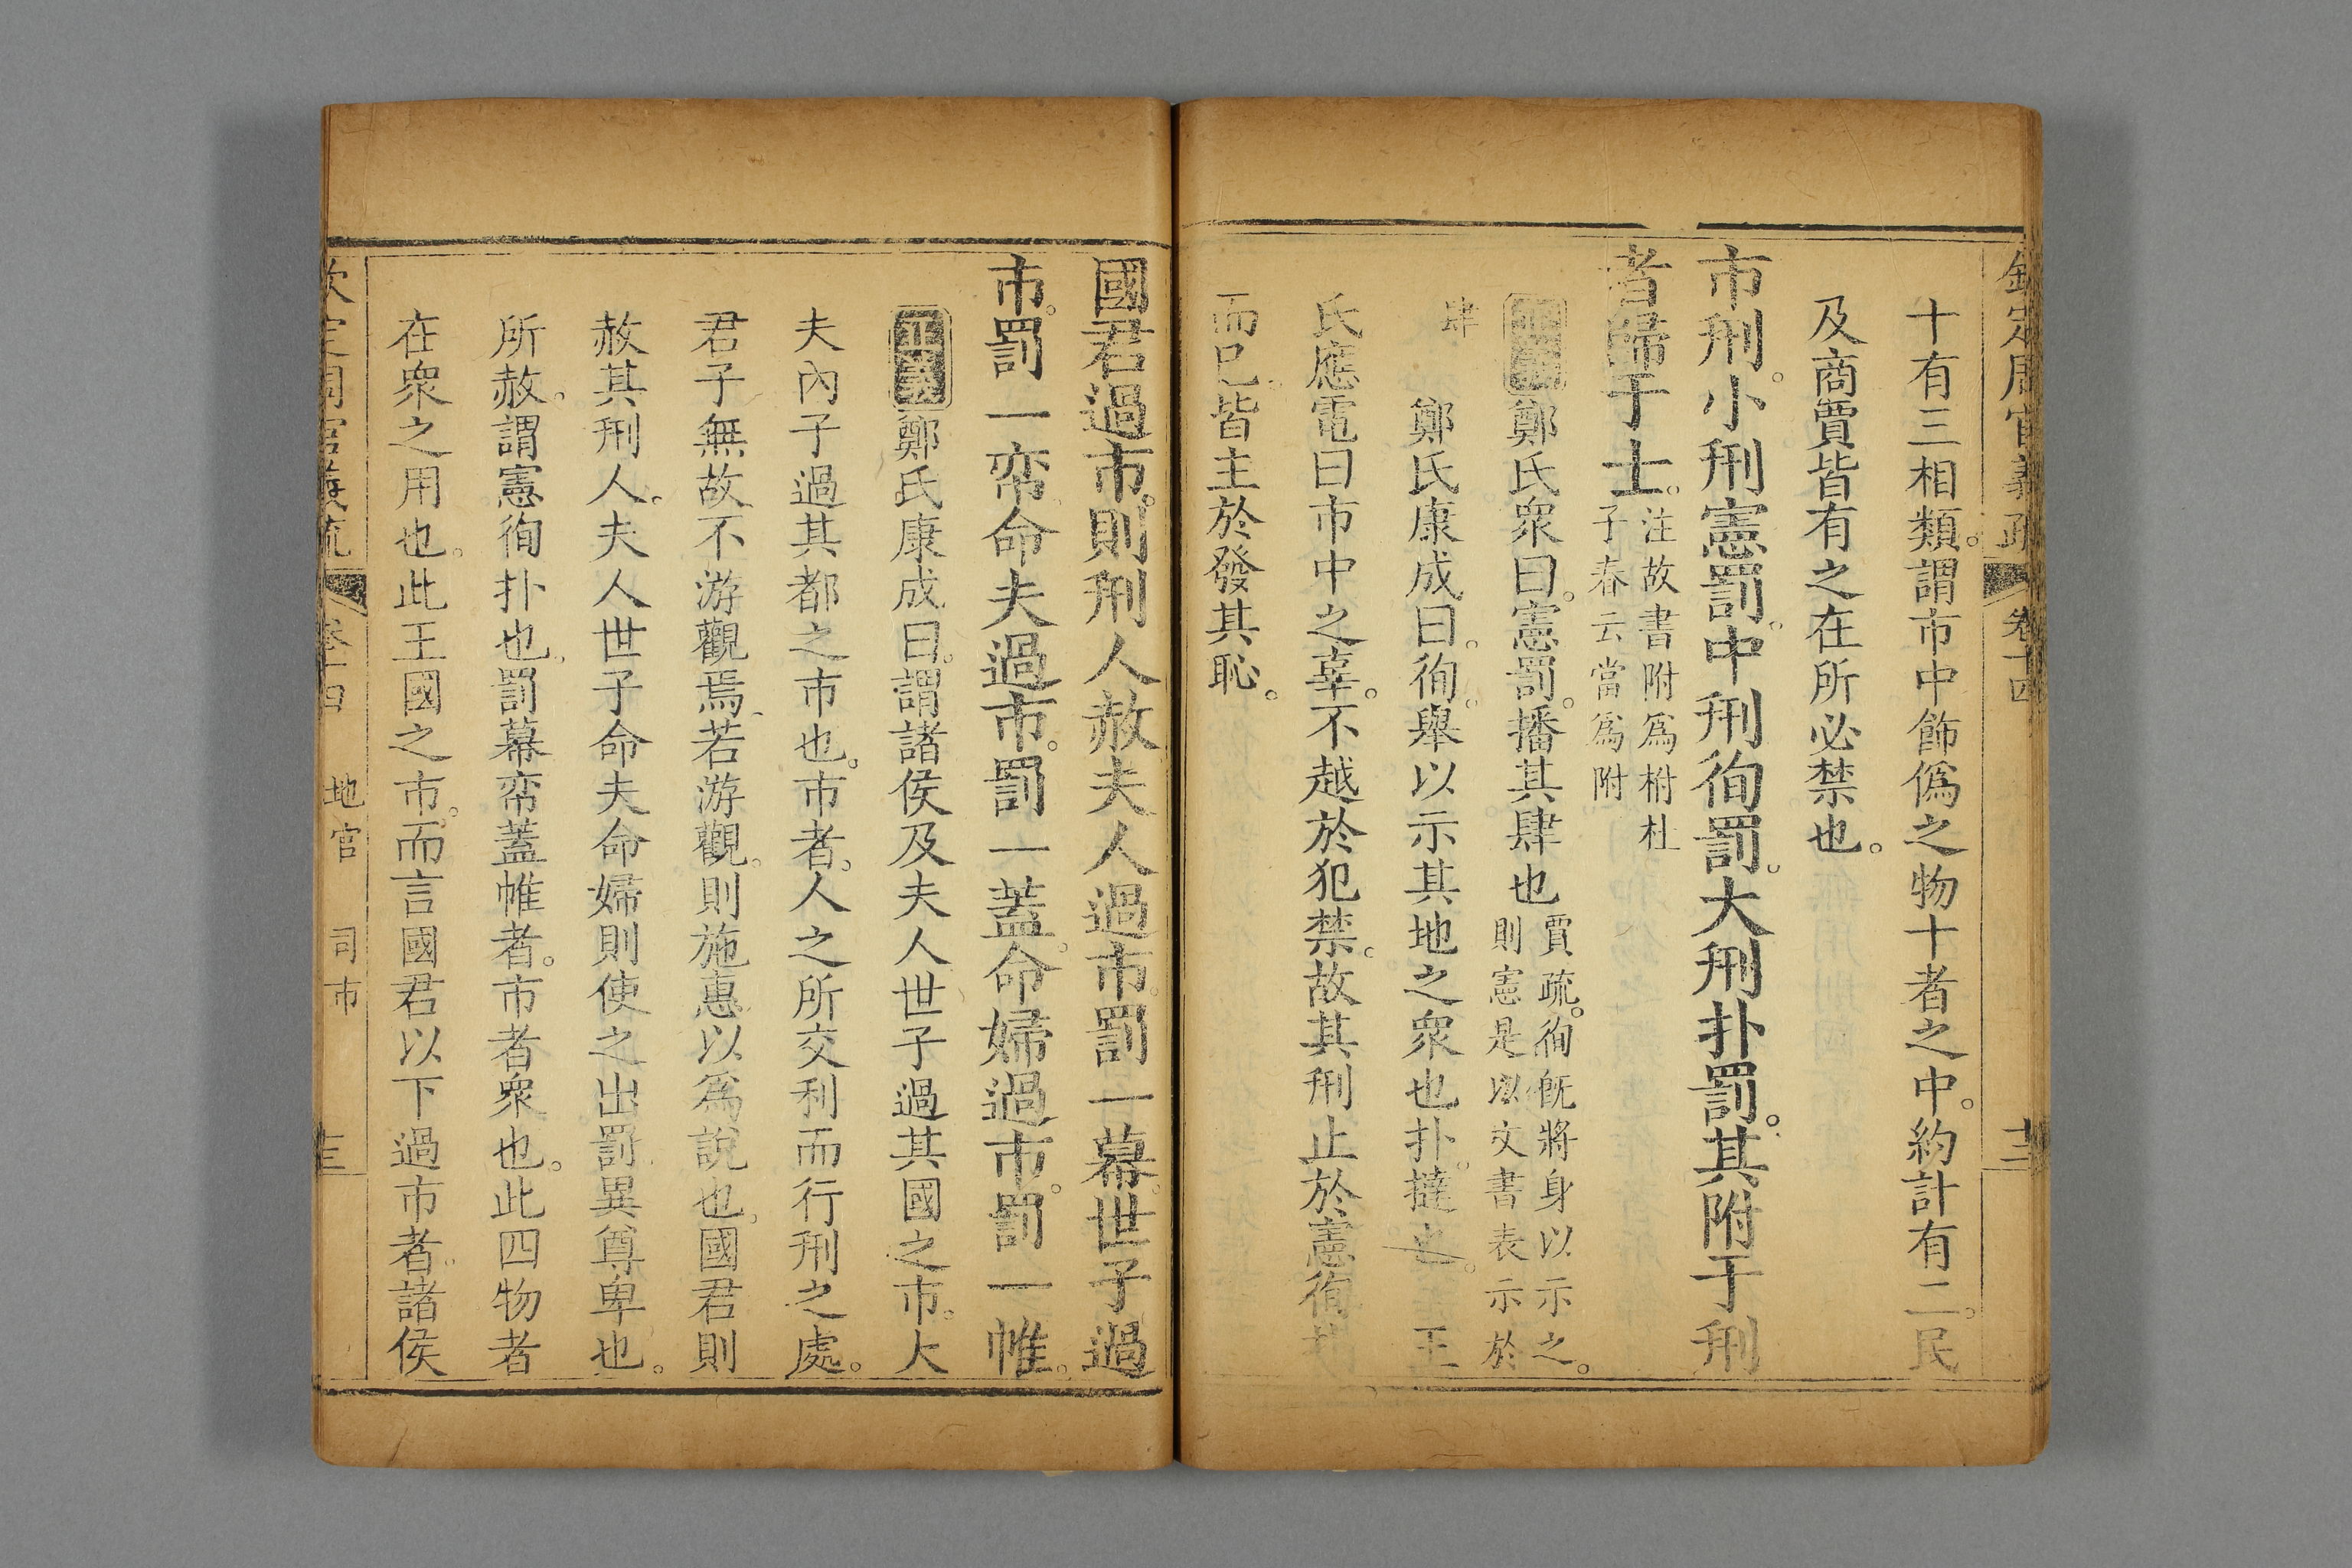 欽定周官義疏 卷十四 十三
十有三相類。謂市中飾僞之物十者之中。約計有二。民
及商賈皆有之在所必禁也。
市刑。小刑憲罰。中刑徇罰。大刑扑罰。其附于刑
者歸于士。注故書附爲柎杜
子春云當爲附
正義鄭氏衆曰。憲罰。播其肆也賈疏。徇旣將身以示之。
則憲是以文書表示於
肆 鄭氏康成曰。徇。舉以示其地之衆也扑。撻也。 王
氏應電曰市中之辜。不越於犯禁。故其刑止於憲徇扑
而已。皆主於發其恥。
國君過市。則刑人赦夫人過市。罰一幕。世子過
市。罰一帟命夫過市。罰一蓋。命婦過市。罰一帷。
正義鄭氏康成曰。謂諸侯及夫人世子過其國之市。大
夫內子過其都之市也。市者。人之所交利而行刑之處。
君子無故不游觀焉、若游觀。則施惠以爲說也。國君則
赦其刑人。夫人世子命夫命婦則使之出罰。異尊卑也。
所赦。謂憲徇扑也。罰幕帟蓋帷者。市者衆也。此四物者
在衆之用也。此王國之市。而言國君以下過市者。諸侯
欽定周官義疏 卷十四 地官 司市 十三